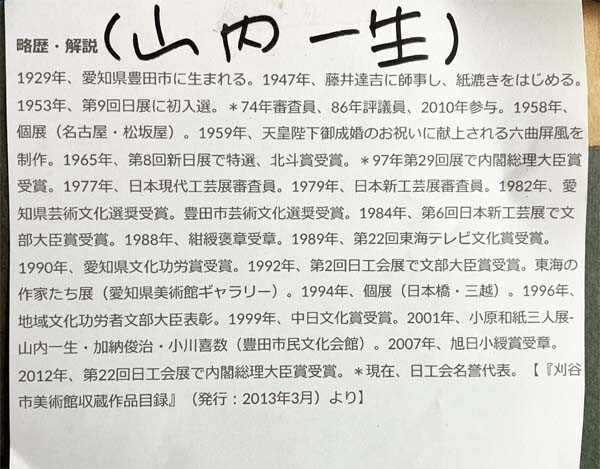 略歴・解説(山内一生)
1929年、愛知県豊田市に生まれる。1947年、藤井達吉に師事し、紙漉きをはじめる。
1953年、第9回日展に初入選。＊74年審査員、86年評議員、2010年参与。1958年、
個展（名古屋・松坂屋）。1959年、天皇陛下御成婚のお祝いに献上される六曲屏風を
制作。1965年、第8回新日展で特選、北斗賞受賞。＊97年第29回展で内閣総理大臣賞
受賞。1977年、日本現代工芸展審査員。1979年、日本新工芸展審査員。1982年、愛
知県芸術文化選奨受賞。豊田市芸術文化選奨受賞。1984年、第6回日本新工芸展で文
部大臣賞受賞。1988年、紺綬褒章受章。1989年、第22回東海テレビ文化賞受賞。
1990年、愛知県文化功労賞受賞。1992年、第2回日工会展で文部大臣賞受賞。東海の
作家たち展（愛知県美術館ギャラリー）。1994年、個展（日本橋・三越）。1996年、
地域文化功労者文部大臣表彰。1999年、中日文化賞受賞。2001年、小原和紙三人展-
山内一生・加納俊治・小川喜数（豊田市民文化会館）。2007年、旭日小綬賞受章。
2012年、第22回日工会展で内閣総理大臣賞受賞。＊現在、日工会名誉代表。【『刈谷
市美術館収蔵作品目録』（発行：2013年3月）より】